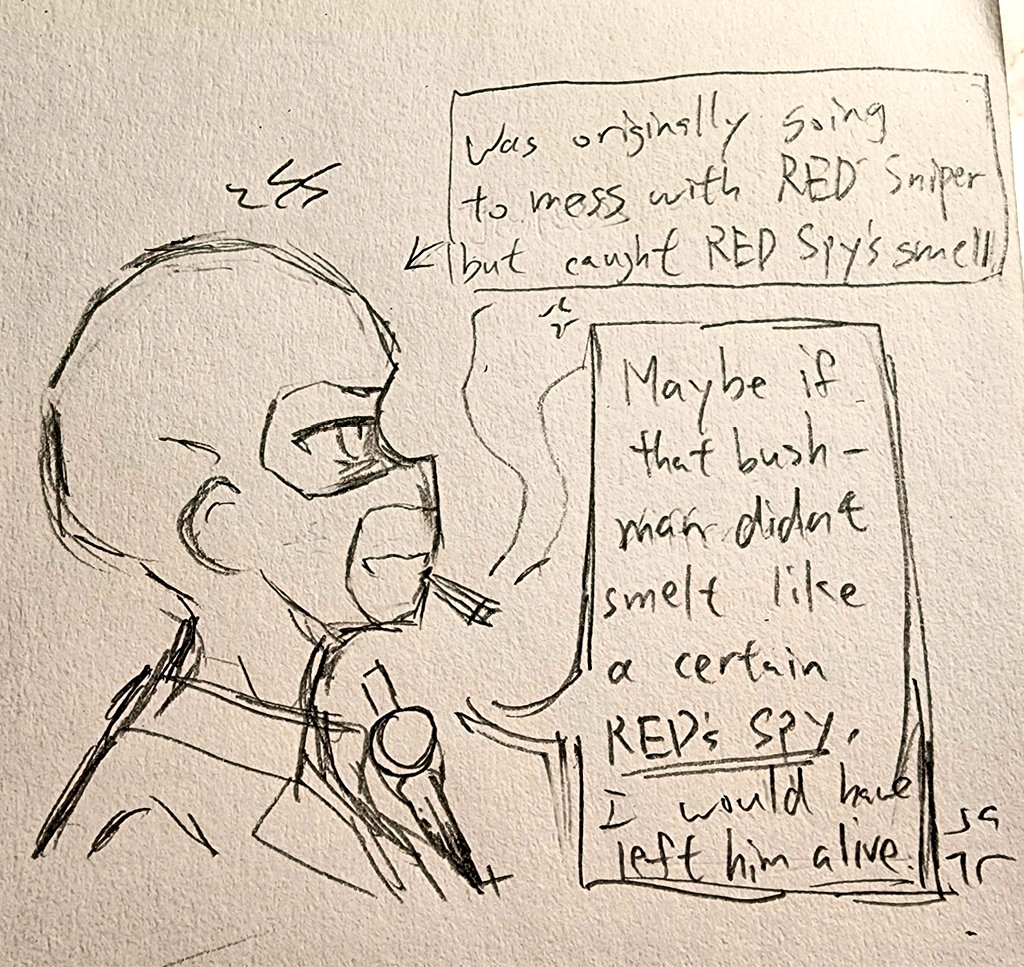 Was originally going
to mess with RED Sniper
but caught RED Spy's smell
Maybe if
that bush-
man didn't
smelt like
a certain
RED's SPY.
I would have
left him alive.